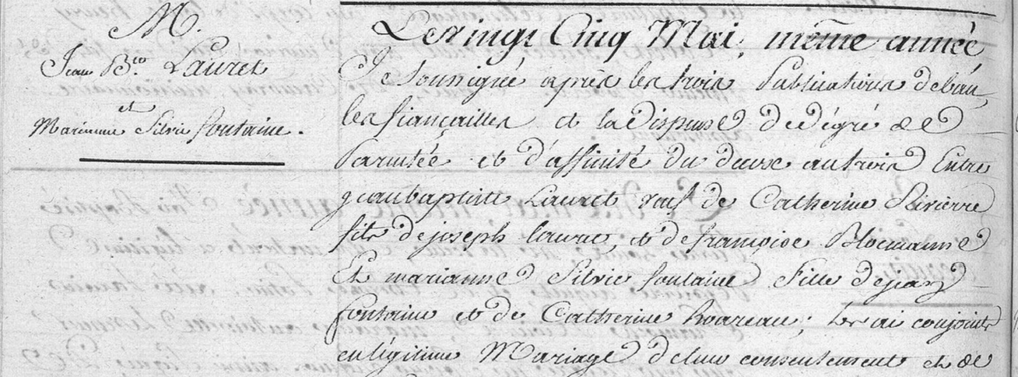 M.
Jean Bte Lauret
et
Marianne Silvie fontaine.
Le vingt Cinq Mai, même année
Je Soussigné après les trois Publications de ban,
les fiançailles et la Dispense de dégré de
Parentée et d'affinité du deux au trois Entre
jean baptiste Lauret veuf de Catherine Rivierre
fils de joseph lauret, et de françoise
Et marianne Silvie fontaine fille de jean
fontaine et de Catherine hoareau; les ai conjoints
en légitime Mariage de leur consentement et de